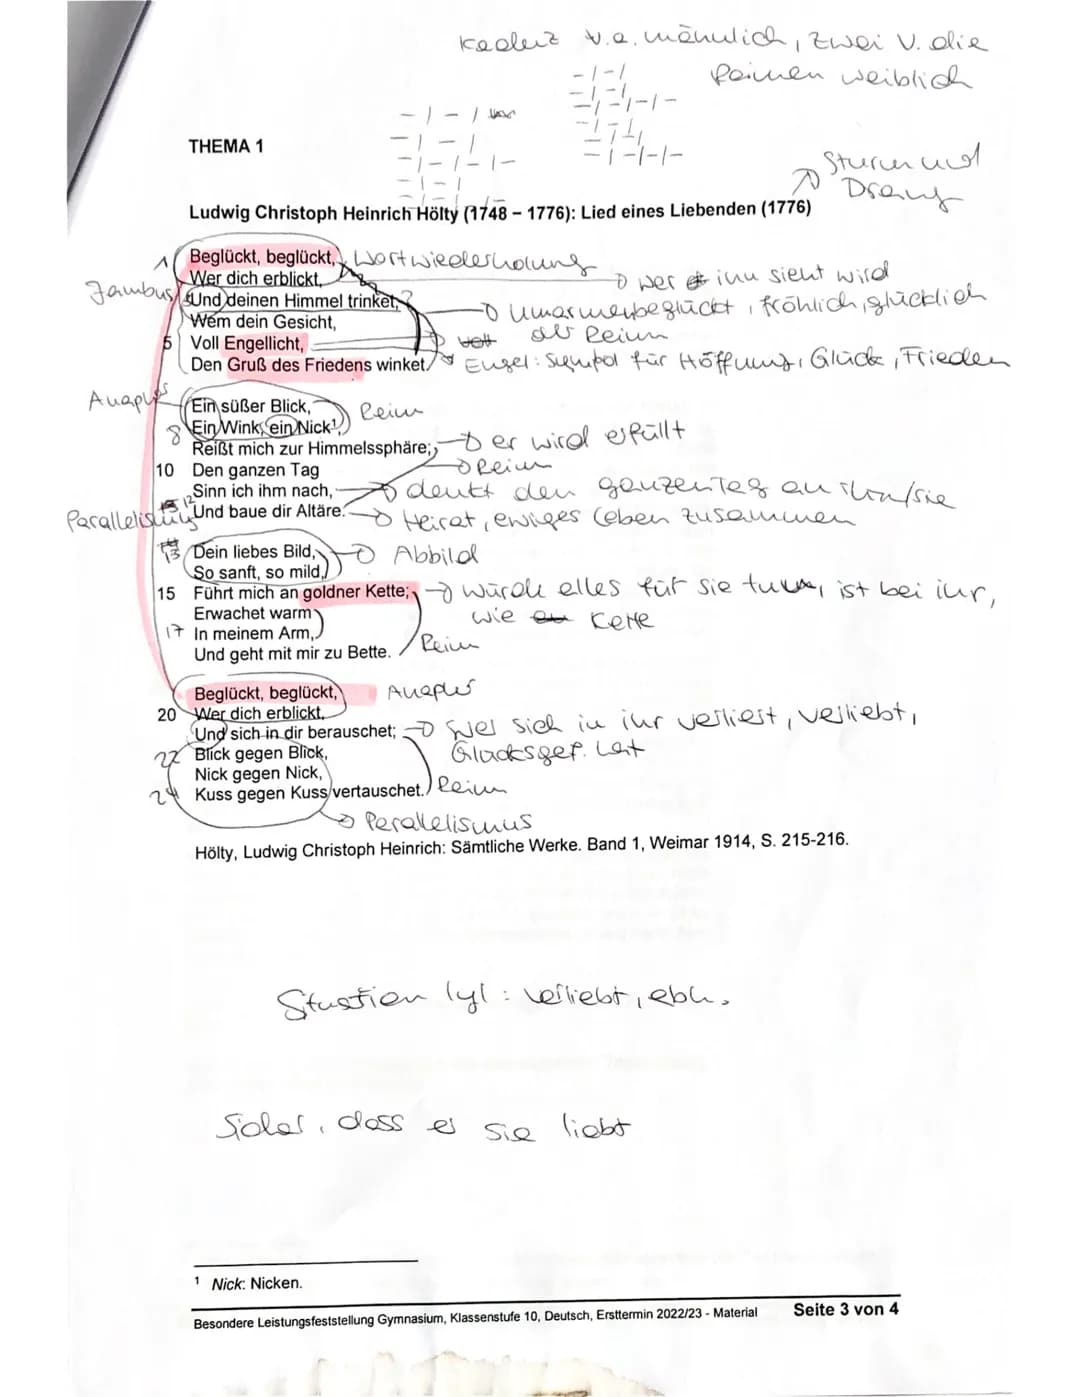 Kadenz v.a. männlich, zwei V. die
Reimen weiblich
THEMA 1
Sturm und
Drang
Ludwig Christoph Heinrich Hölty (1748 – 1776): Lied eines Liebenden (1776)
1 Beglückt, beglückt, Wortwiederholung
Wer dich erblickt, wer ihn sieht wird
Jambus Und deinen Himmel trinket, beglückt, fröhlich, glücklich
Wem dein Gesicht, der Reim
5 Voll Engellicht,
Den Gruß des Friedens winket. Engel: Symbol für Hoffnung, Glück, Frieden
Anapher Ein süßer Blick, Reim
8 Ein Wink, ein Nick¹,
Reißt mich zur Himmelssphäre; er wird erfüllt
10 Den ganzen Tag Reim
Sinn ich ihm nach, denkt den ganzen Tag an ihn/sie
Parallelismus 12 Und baue dir Altäre. Heirat, ewiges Leben zusammen
13 Dein liebes Bild, Abbild
So sanft, so mild,
15 Führt mich an goldner Kette; würde alles für sie tun, ist bei ihr,
Erwachet warm wie Kette
17 In meinem Arm,
Und geht mit mir zu Bette. Reim
Beglückt, beglückt, Anapher
20 Wer dich erblickt,
Und sich in dir berauschet; wer sich in ihr verliert, verliebt,
22 Blick gegen Blick, Glücksgef. hat
Nick gegen Nick,
24 Kuss gegen Kuss vertauschet. Reim
Parallelismus
Hölty, Ludwig Christoph Heinrich: Sämtliche Werke. Band 1, Weimar 1914, S. 215-216.
Situation lyI: verliebt, ebh.
Sicher, dass er sie liebt
¹ Nick: Nicken.
Besondere Leistungsfeststellung Gymnasium, Klassenstufe 10, Deutsch, Ersttermin 2022/23 - Material Seite 3 von 4